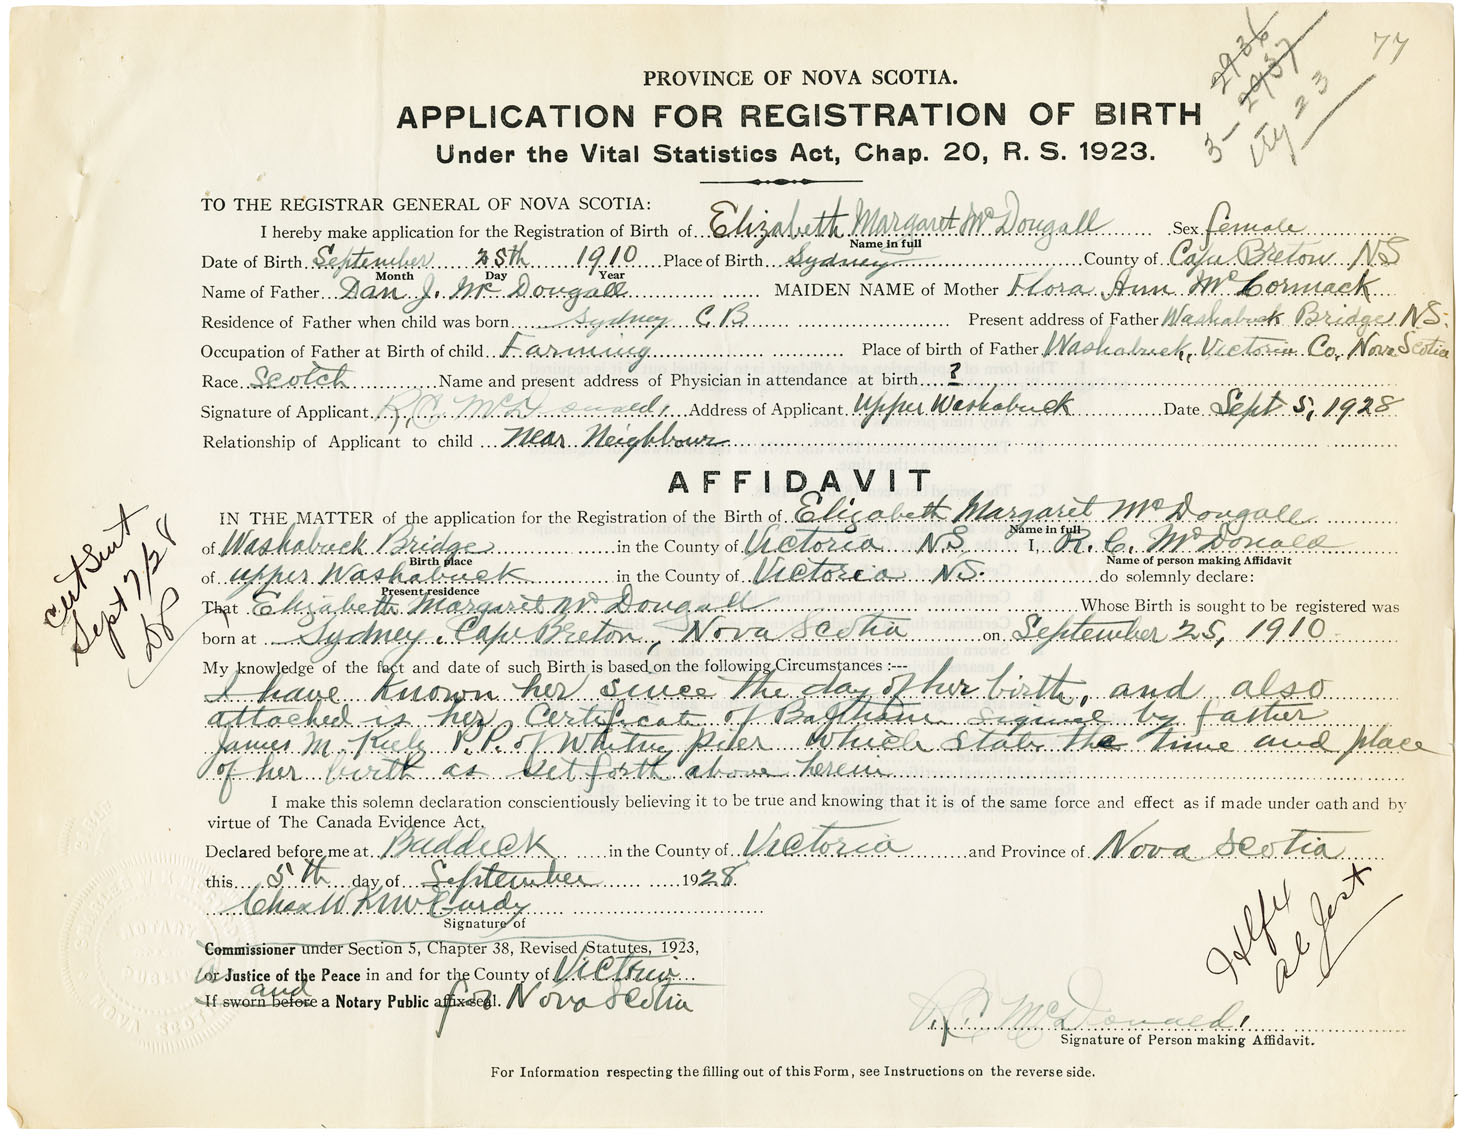 77
2936
2937
3 — 23
PROVINCE OF NOVA SCOTIA.
APPLICATION FOR REGISTRATION OF BIRTH
Under the Vital Statistics Act, Chap. 20, R. S. 1923.
TO THE REGISTRAR GENERAL OF NOVA SCOTIA:
I hereby make application for the Registration of Birth of Elizabeth Margaret McDougall Sex female
Name in full
Date of Birth September 25th 1910 Place of Birth Sydney County of Cape Breton NS
Month Day Year
Name of Father Dan J. McDougall MAIDEN NAME of Mother Flora Ann McCormack
Residence of Father when child was born Sydney C.B Present address of Father Washabuck Bridge NS.
Occupation of Father at Birth of child Farming Place of birth of Father Washabuck, Victoria Co, Nova Scotia
Race Scotch Name and present address of Physician in attendance at birth ?
Signature of Applicant R. C. McDonald, Address of Applicant Upper Washabuck Date Sept 5, 1928
Relationship of Applicant to child Near Neighbour
AFFIDAVIT
IN THE MATTER of the application for the Registration of the Birth of Elizabeth Margaret McDougall
Name in full
of Washabuck Bridge in the County of Victoria NS I, R. C. McDonald
Birth place Name of person making Affidavit
of upper Washabuck in the County of Victoria NS. do solemnly declare:
Present residence
That Elizabeth Margaret McDougall Whose Birth is sought to be registered was
born at Sydney, Cape Breton, Nova Scotia on September 25, 1910
My knowledge of the fact and date of such Birth is based on the following Circumstances :---
I have known her since the day of her birth, and also
attached is her Certificate of Baptism signed by father
James M. Kiely P.P. of Whitney pier which states the time and place
of her birth as set forth above herein
I make this solemn declaration conscientiously believing it to be true and knowing that it is of the same force and effect as if made under oath and by
virtue of The Canada Evidence Act.
Declared before me at Baddeck in the County of Victoria and Province of Nova Scotia
this 5th day of September 1928.
Chas W K McCurdy
Signature of
Commissioner under Section 5, Chapter 38, Revised Statutes, 1923,
or Justice of the Peace in and for the County of Victoria
and
If sworn before a Notary Public affix seal. for Nova Scotia
R. C. McDonald,
Signature of Person making Affidavit.
For Information respecting the filling out of this Form, see Instructions on the reverse side.
Cert Sent
Sept 17/28
NOTARY
PUBLIC
NOVA SCOTIA